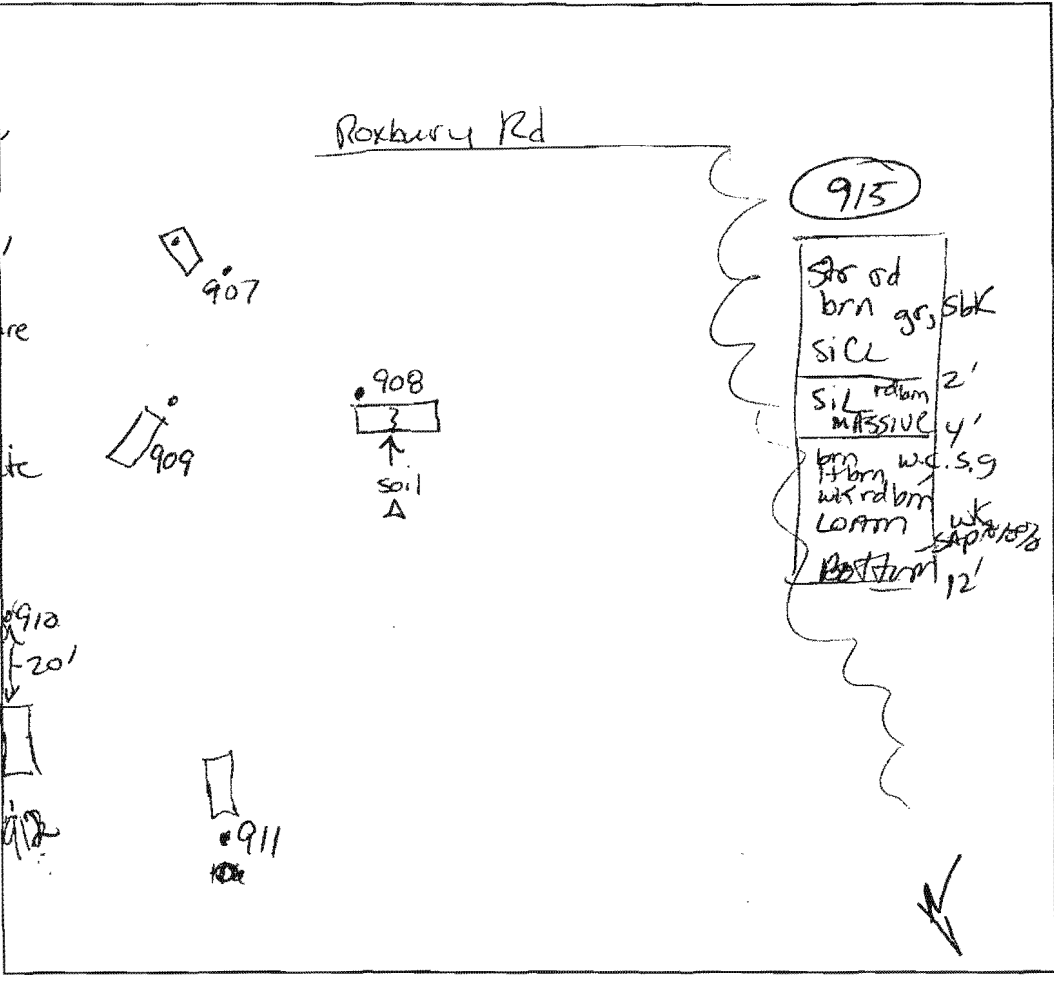 Roxbury Rd
915
Str rd
brn gr, sbk
SiCL
2'
SiL rd brn
MASSIVE 4'
brn w.c.s.g
lt brn
wk rd brn
LOAM wk
SAp
Bottom
12'
907
908
soil
909
re
te
910
20'
911
N